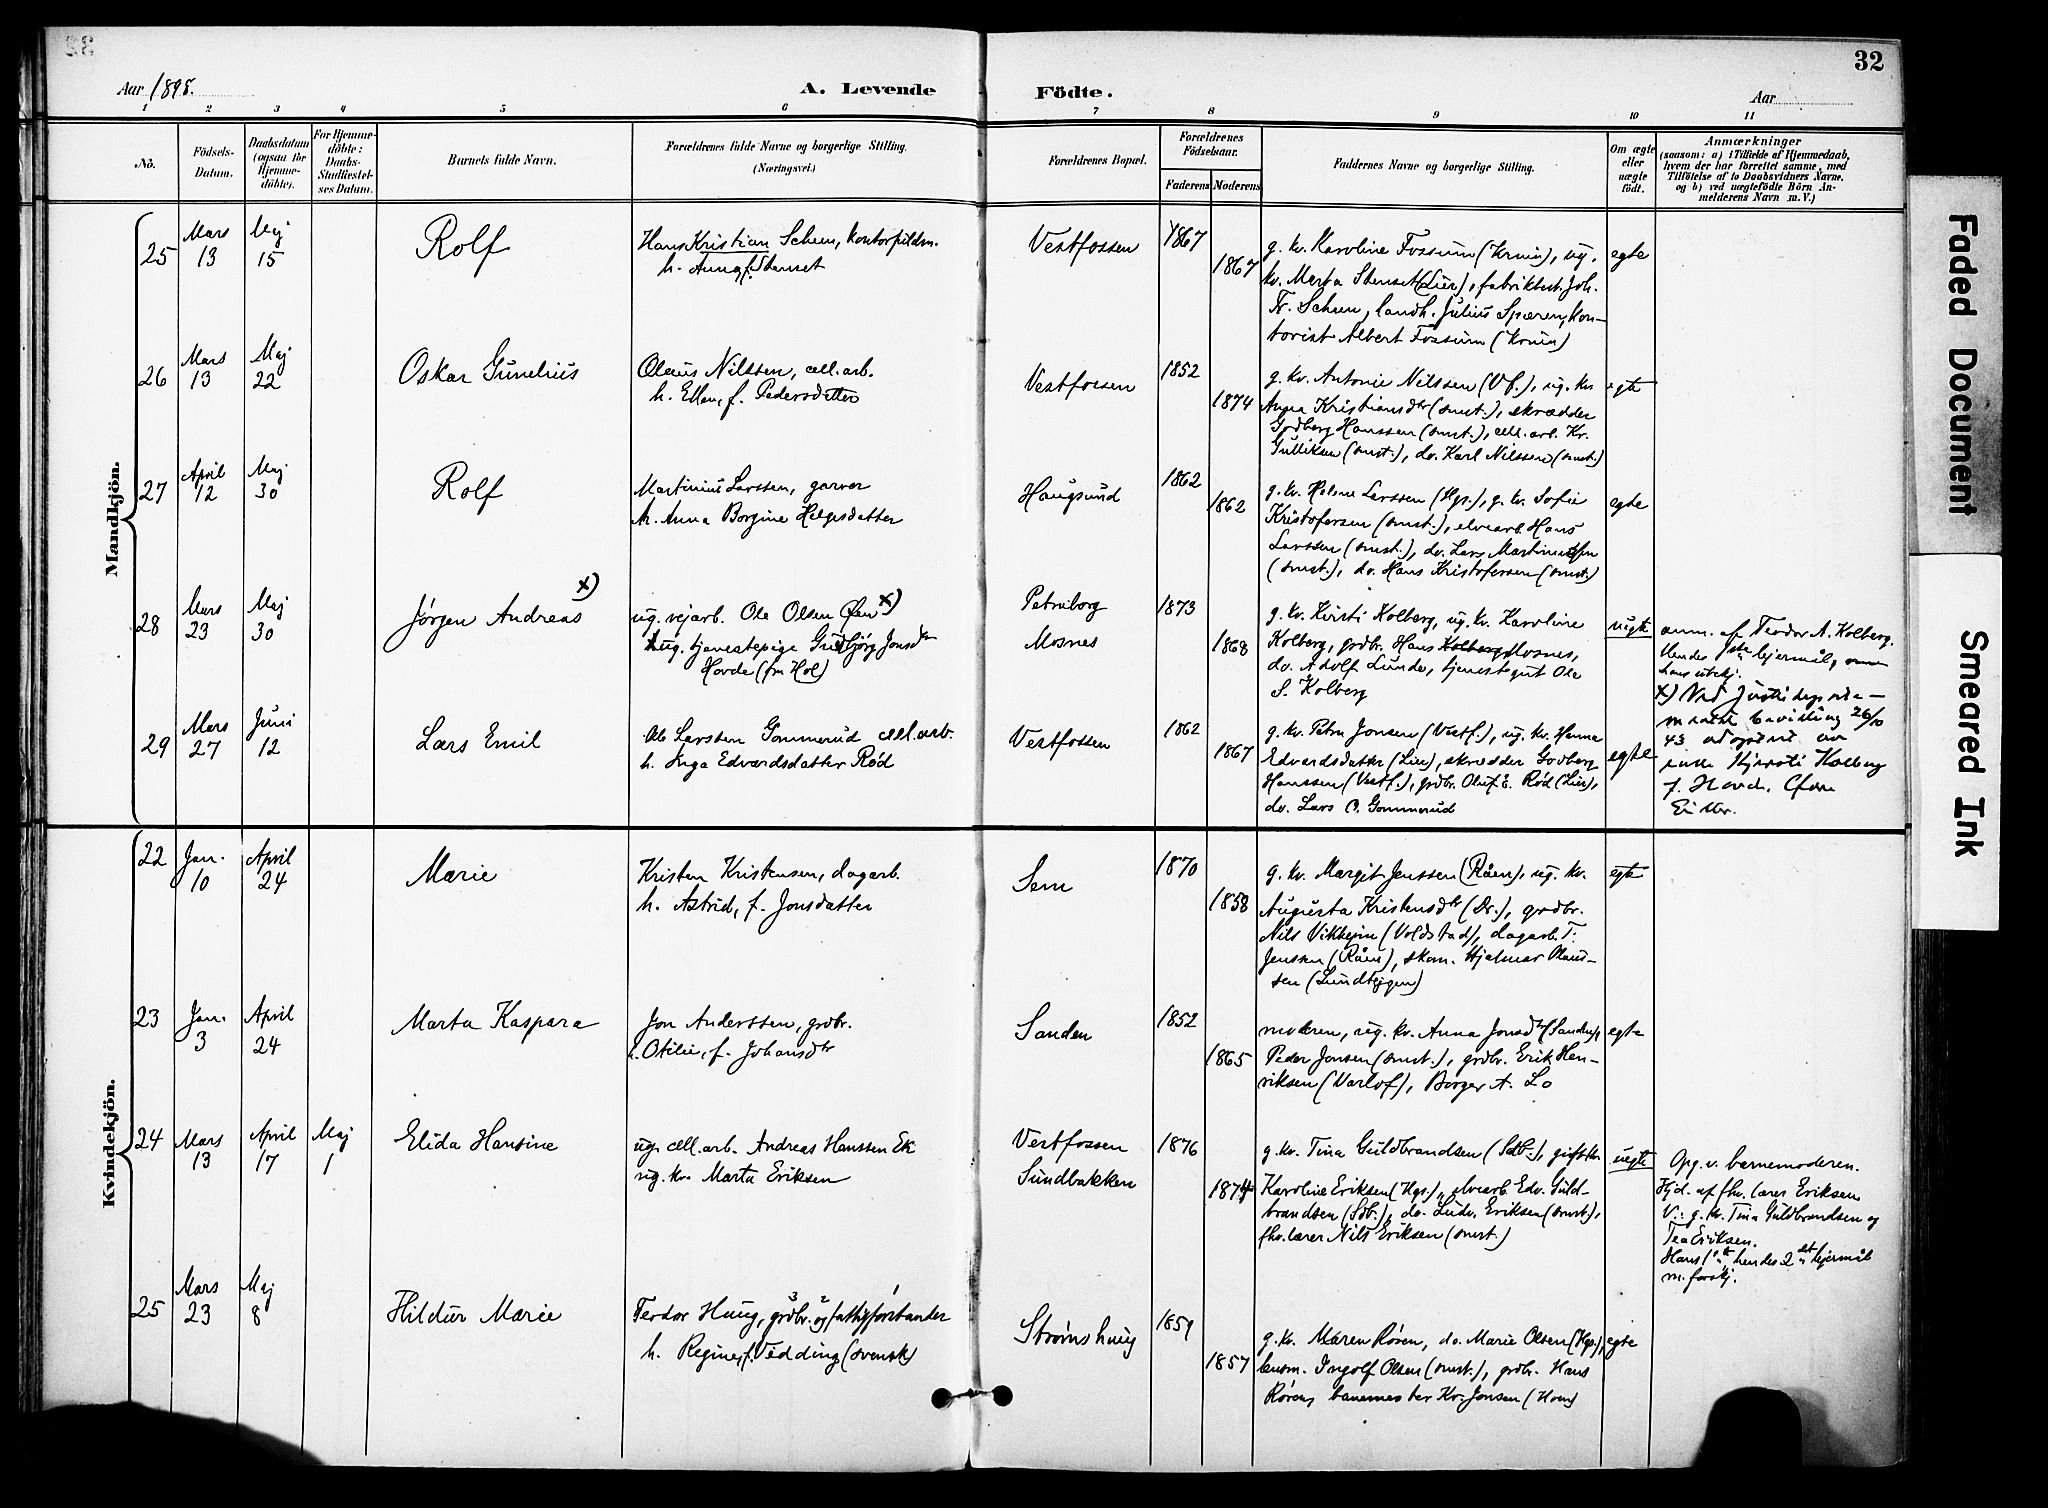 32
Aar 1898.
A. Levende Födte.
Aar
1 2 3 4 5 6 7 8 9 10 11
No.
Födsels-
Datum.
Daabsdatum
(ogsaa for
Hjemme-
döbte).
For Hjemme-
döbte:
Daabs-
Stadfæstel-
ses Datum.
Barnets fulde Navn.
Forældrenes fulde Navne og borgerlige Stilling.
(Næringsvei.)
Forældrenes Bopæl.
Forældrenes
Födselsaar.
Faderens Moderens
Faddernes Navne og borgerlige Stilling.
Om ægte
eller
uægte
födt.
Anmærkninger
(saasom: a) i Tilfælde af Hjemmedaab,
hvem der har forrettet samme, med
Tilföielse af to Daabsvidners Navne.
og b) ved uægtefödte Börn An-
melderens Navn m. V.)
Mandkjön.
25
Mars
13
Maj
15
Rolf
Hans Kristian Scheen, kontorfuldm.
h. Anna f. Stenset
Vestfossen
1867
1867
g. kv. Karoline Fossum (Krnin), ug.
kv. Marta Stenset (Lier), fabrikbest. Joh.
Fr. Scheen, landh. Julius Spæren, kon-
torist Albert Fossum (Krnin)
egte
26
Mars
13
Maj
22
Oskar Gunelius
Olaus Nilssen, cell.arb.
h. Ellen, f. Pedersdatter
Vestfossen
1852
1874
g. kv. Antonie Nilssen (Vf.), ug. kv
Anna Kristiansdtr (smst.), skrædder
Godberg Hanssen (smst.), cell.arb. Kr.
Gulliksen (smst.), do. Karl Nilssen (smst.)
egte
27
April
12
Maj
30
Rolf
Martinius Larssen, garver
h. Anna Borgine Helgesdatter
Haugsund
1862
1862
g. kv. Helene Larssen (Hgs.), g. kv. Sofie
Kristofersen (smst.), elvearb. Hans
Larssen (smst.), do. Lars Martinussen
(smst.), do. Hans Kristofersen (smst.)
egte
28
Mars
23
Maj
30
Jørgen Andreas x)
ug. vejarb. Ole Olsen Øen x)
ug. tjenestepige Gudbjørg Jonsdtr
Hovde (fra Hol)
Petriborg
Mosnes
1873
1868
g. kv. Kristi Kolberg, ug. kv. Karoline
Kolberg, grdbr. Hans Mosnes,
do. Adolf Lunde, tjenestgut Ole
S. Kolberg
uegte
anm. af Teodor A. Kolberg.
Hendes lejermål,
hans ubekj.
x) Ved Justisdeparte-
mentets bevilling 26/10
43 adoptert av
enke Kjersti Kolberg
f. Hovde, Øvre
Eiker.
29
Mars
27
Juni
12
Lars Emil
Ole Larssen Gommerud cell.arb.
h. Inga Edvardsdatter Rød
Vestfossen
1862
1867
g. kv. Petra Jonsen (Vestf.), ug. kv. Hanna
Edvardsdatter (Lier), skrædder Godberg
Hanssen (Vestf.), grdbr. Oluf E. Rød (Lier),
do. Lars O. Gommerud
egte
Kvindekjön.
22
Jan.
10
April
24
Marie
Kristen Kristensen, dagarb.
h. Astrid, f. Jonsdatter
Sem
1870
1858
g. kv. Margit Jenssen (Råen), ug. kv.
Augusta Kristensdtr (Dr.), grdbr.
Nils Vikhejm (Voldstad), dagarb. T.
Jenssen (Råen), skom. Hjalmar Olaus-
sen (Lundtejgen)
egte
23
Jan.
3
April
24
Marta Kaspara
Jon Anderssen, grdbr.
h. Otilie, f. Johansdtr
Sanden
1852
1865
moderen, ug. kv. Anna Jonsdtr (Sanden),
Peder Jonsen (smst.), grdbr. Erik Hen-
riksen (Varlof), Borger A. Lo
egte
24
Mars
13
April
17
Maj
1
Elida Hansine
ug. cell.arb. Andreas Hanssen Ek
ug. kv. Marta Eriksen
Vestfossen
Sundbakken
1876
1874
g. kv. Tina Guldbrandsen (Sdb.), gift kv.
Karoline Eriksen (Hgs.), elvearb. Edv. Guld-
brandsen (Sdb.), do. Ludv. Eriksen (smst.),
fhv. lærer Nils Eriksen (smst.)
uegte
Opg. v. barnemoderen.
Hjd. af fhv. lærer Eriksen
V.: g. kv. Tina Guldbrandsen og
Tea Eriksen.
Hans 1ste hendes 2det lejermål
m. forskj.
25
Mars
23
Maj
8
Hildur Marie
Teodor Haug, grdbr. og fattigforstander
h. Regine, f. Vedding (svensk)
Strømshaug
1851
1857
g. kv. Maren Røren, do. Marie Olsen (Hgs),
lensm. Ingolf Olsen (smst.), grdbr. Hans
Røren, banemester Kr. Jonsen (Hon)
egte
Faded Document
Smeared Ink